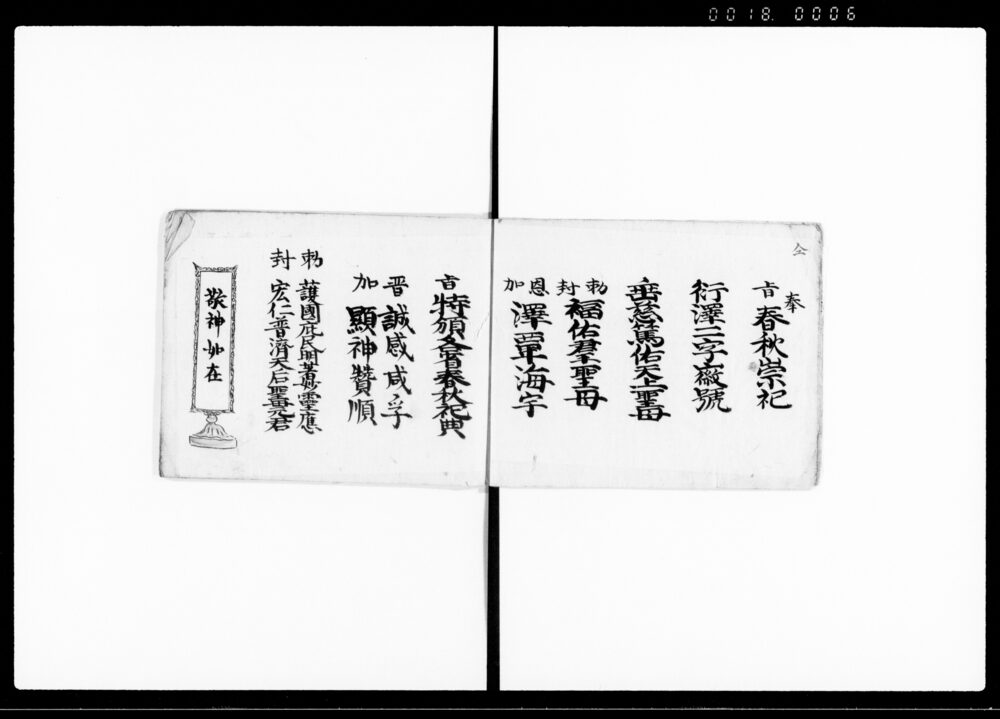 0018. 0006
仝
奉
旨春秋崇祀
衍澤二字徽號
垂慈篤佑天上聖母
勅
封福佑群生聖母
恩
加澤覃海宇
旨特頒各省春秋祀典
晋誠感咸孚
加顯神贊順
勅護國庇民明著妙靈應
封宏仁普濟天后聖母元君
敬神如在